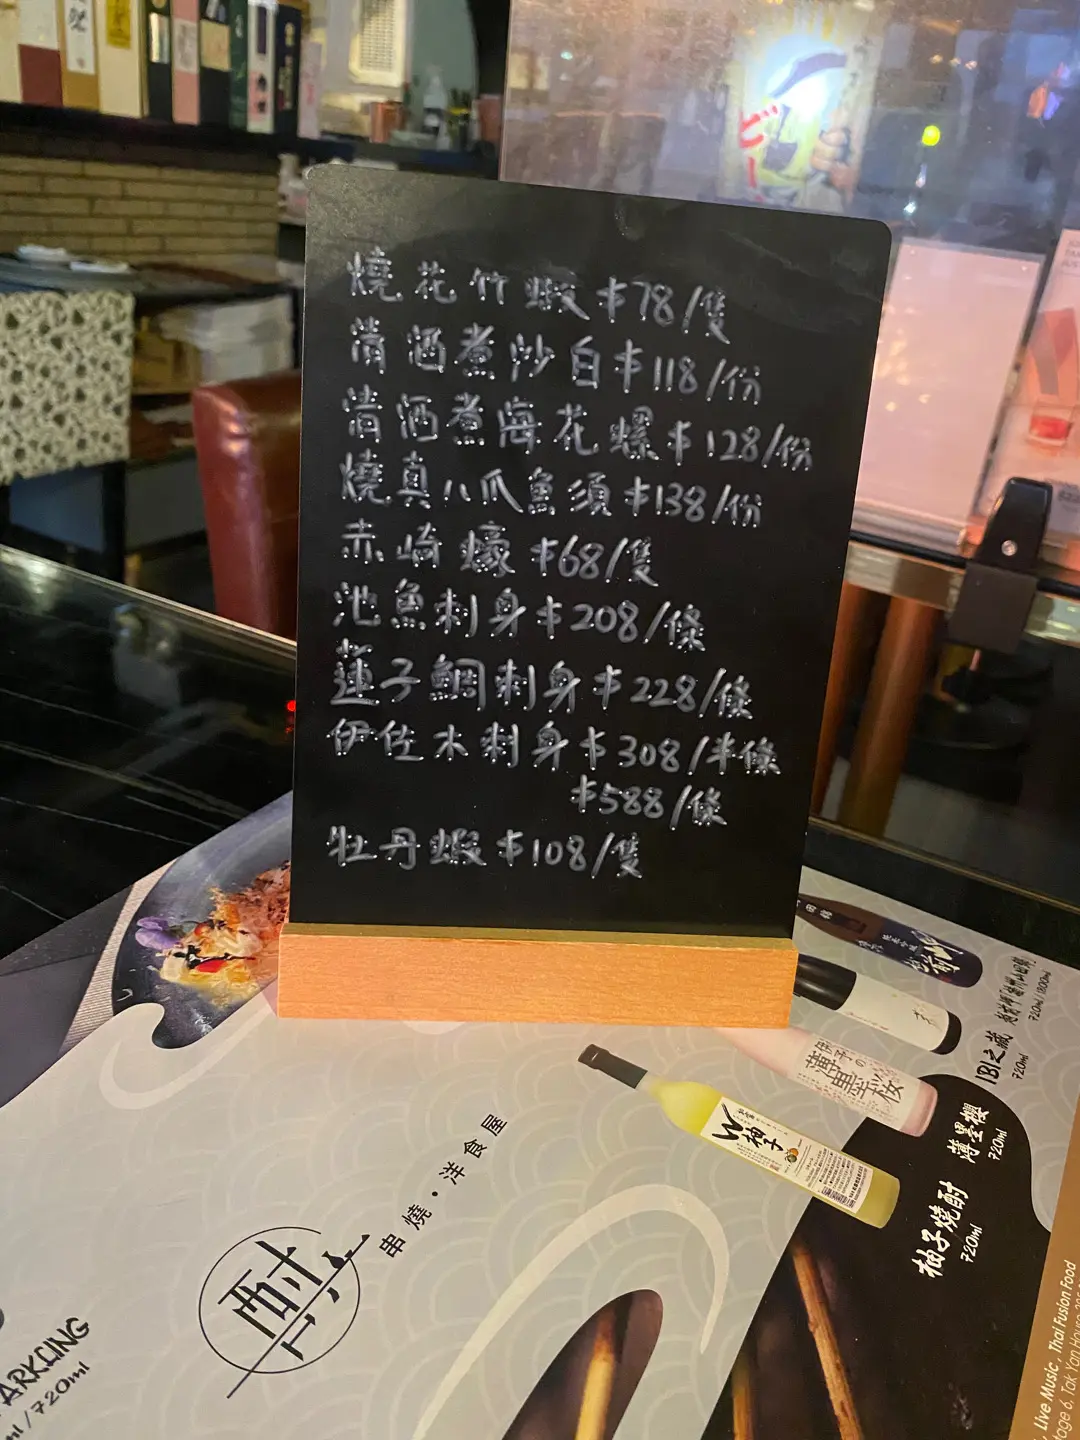 ビー
燒花竹蝦 $78/隻
清酒煮沙白 $118/份
清酒煮海花螺 $128/份
燒真八爪魚須 $138/份
赤崎蠔 $68/隻
池魚刺身 $208/條
蓮子鯛刺身 $228/條
伊佐木刺身 $308/半條
$588/條
牡丹蝦 $108/隻
720ml/1800ml
IBI之蔵
720ml
薄墨桜
薄墨櫻
720ml
W
柚子
柚子燒酎
720ml
串燒·洋食屋
酎
ARKLING
ml/720ml
, Live Music, Thai Fusion Food
tage 6, Tak Yan House